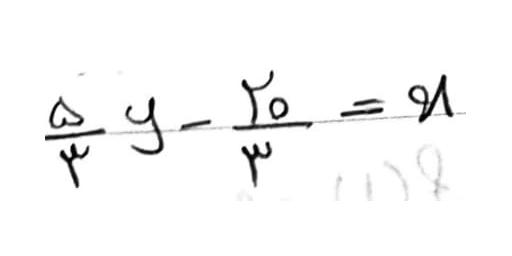 ۵/۳ y - ۲۵/۳ = x